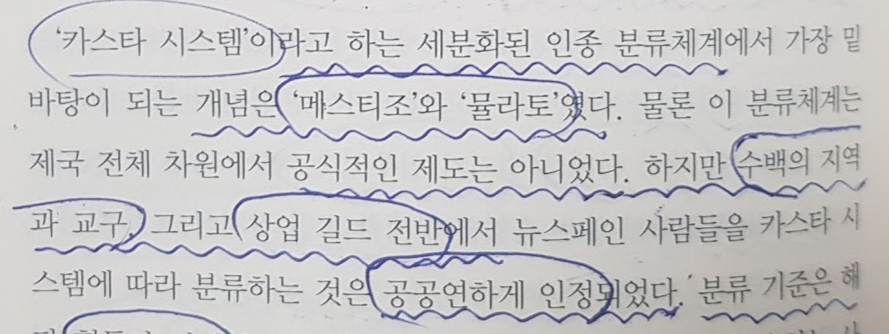 '카스타 시스템'이라고 하는 세분화된 인종 분류체계에서 가장 밑
바탕이 되는 개념은 '메스티조'와 '뮬라토'였다. 물론 이 분류체계는
제국 전체 차원에서 공식적인 제도는 아니었다. 하지만 수백의 지역
과 교구, 그리고 상업 길드 전반에서 뉴스페인 사람들을 카스타 시
스템에 따라 분류하는 것은 공공연하게 인정되었다. 분류 기준은 해